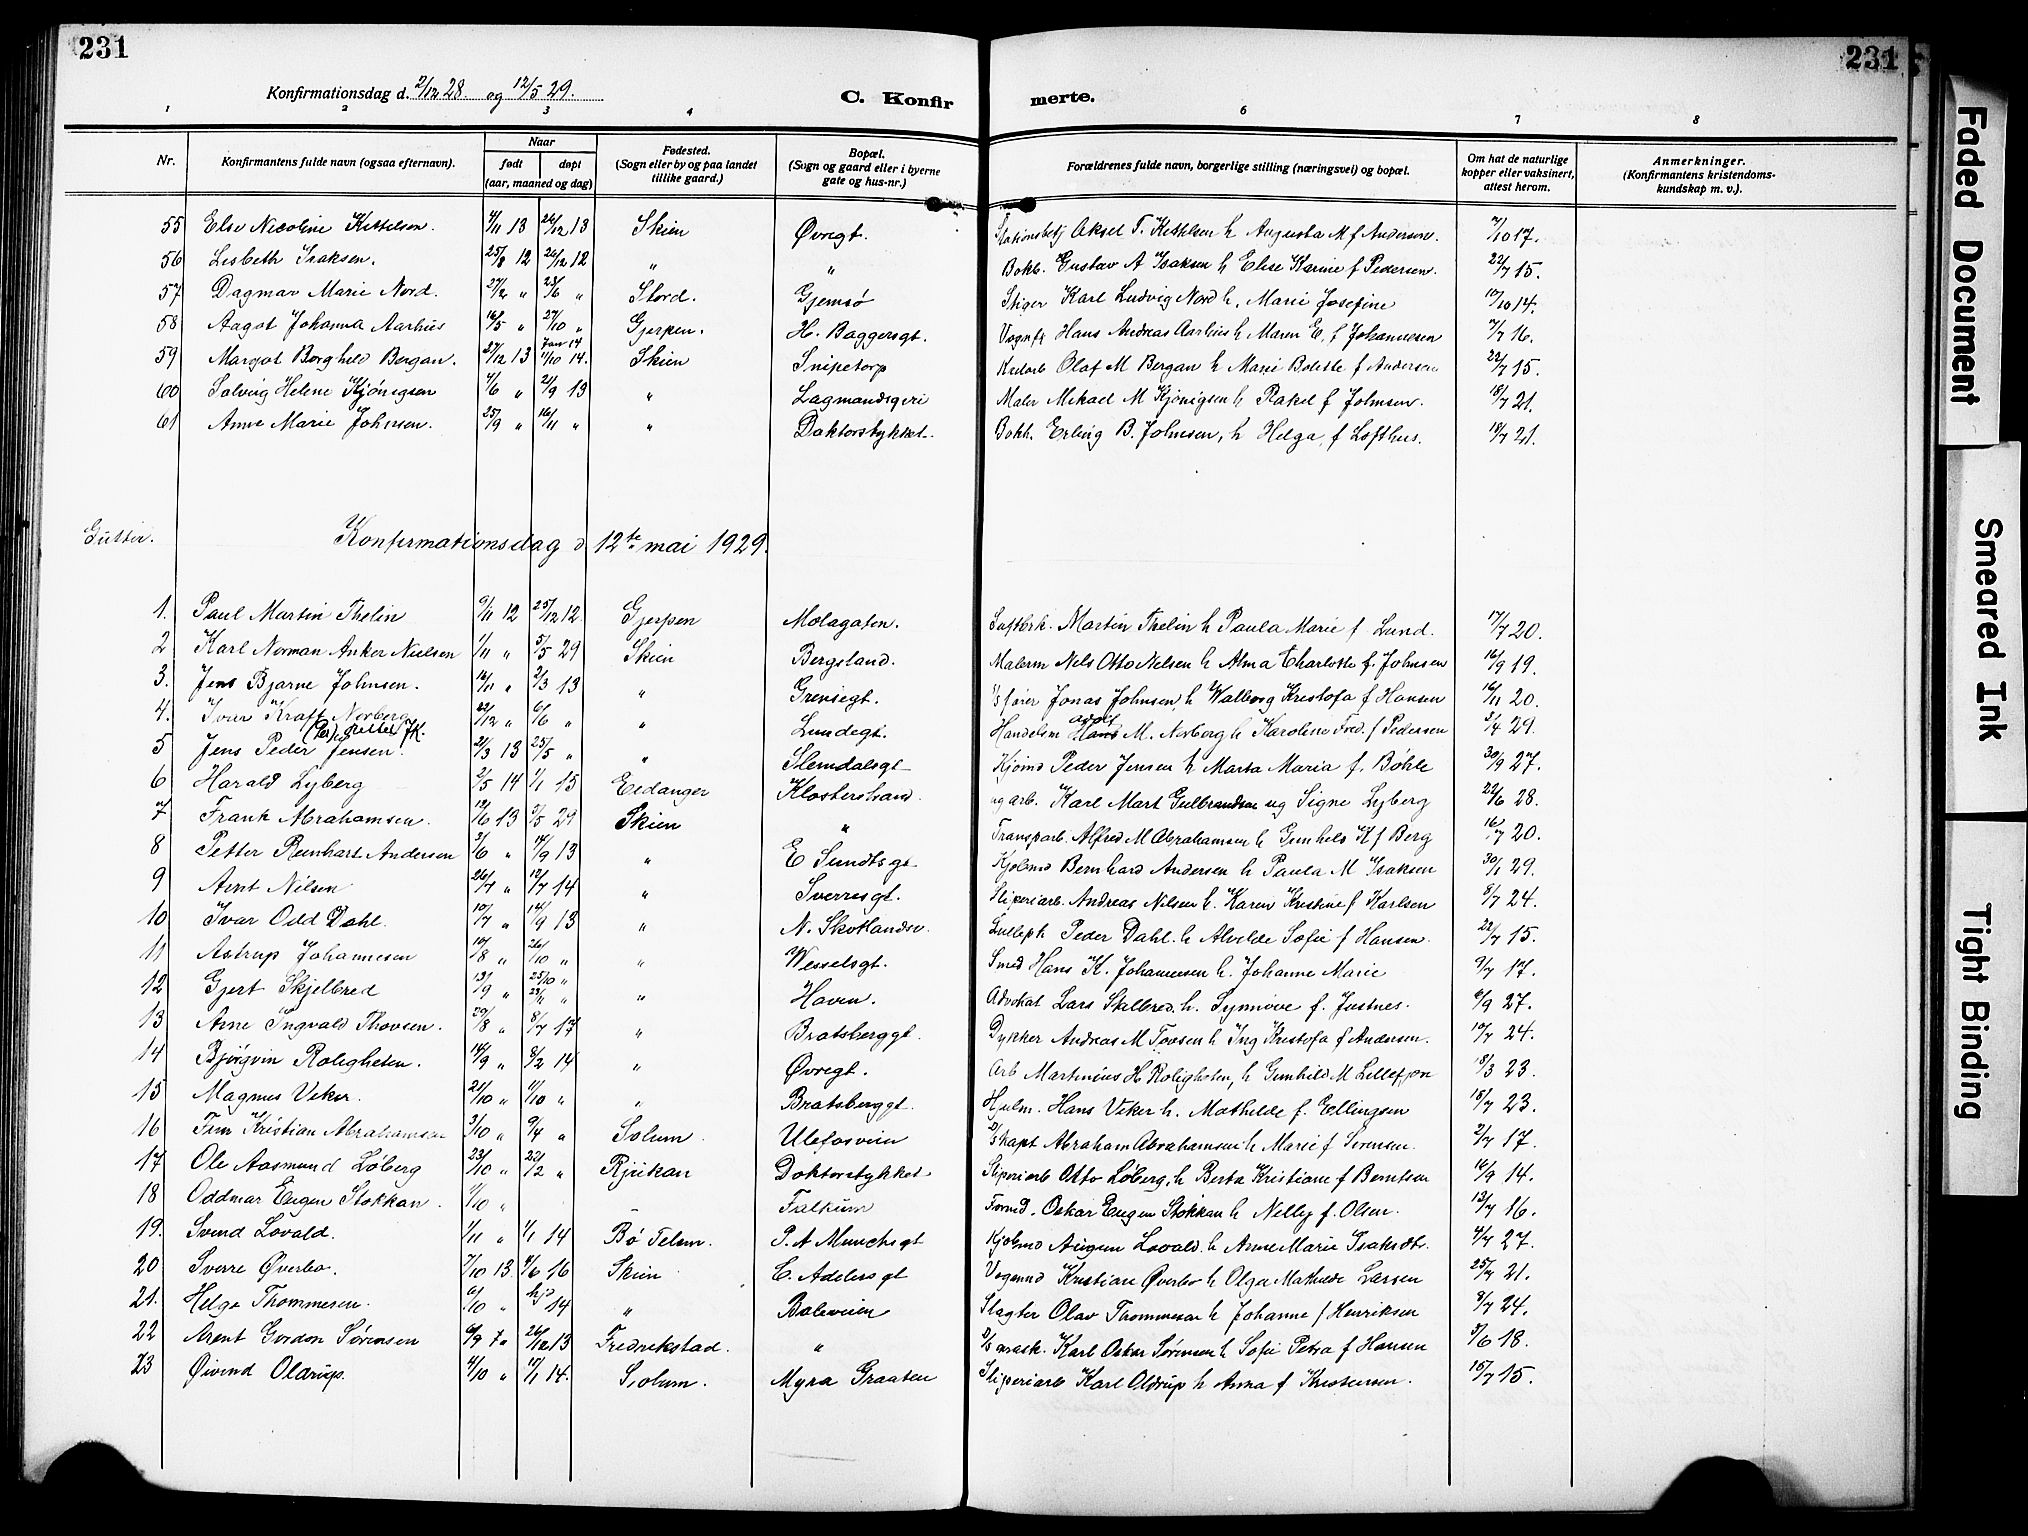 231
231
Konfirmationsdag d. 2/12 28. og 12/5 29.
C. Konfir merte.
1 2 3 4 5 6 7 8
Nr. Konfirmantens fulde navn (ogsaa efternavn). Naar født døpt (aar, maaned og dag) Fødested. (Sogn eller by og paa landet tillike gaard.) Bopæl. (Sogn og gaard eller i byerne gate og hus-nr.) Forældrenes fulde navn, borgerlige stilling (næringsvei) og bopæl. Om hat de naturlige kopper eller vaksinert, attest herom. Anmerkninger. (Konfirmantens kristendomskundskap m. v.).
55 Else Nicoline Kittelsen. 4/11 13 26/12 13 Skien Øvregt. Stationsbetj Aksel T. Kittilsen h Augusta M f Andersen. 7/10 17.
56 Lisbeth Isaksen. 25/8 12 26/12 12 " " Bokb. Gustav A Isaksen h Elise Karine f Pedersen. 22/7 15.
57 Dagmar Marie Nord. 27/2 " 23/6 " Stord. Gjemsø Stiger Karl Ludvig Nord h. Marie Josefine 10/10 14.
58 Aagot Johanna Aarhus 16/5 " 27/10 " Gjerpen. H. Baggersgt. Vognfr Hans Andreas Aarhus h Maren E. f Johannesen 7/7 16.
59 Margot Borghild Bergan. 27/12 13 11/10 14. Skien Snipetorp Olaf M Bergan h Marie Bolette f Andersen 22/7 15.
60 Solveig Helene Kjønigsen 4/6 " 21/9 13 " Lagmandsgeri Maler Mikael M Kjønigsen h Rakel f Johnsen. 18/7 21.
61 Anne Marie Johnsen. 25/9 " 16/11 " " Doktorstykket. Bokh. Erling B. Johnsen, h Helga, f Lofthus. 18/7 21.
Gutter. Konfirmationsdag d 12te mai 1929.
1. Paul Martin Thelin 9/11 12 25/12 12. Gjerpen Molagaten. Martin Thelin h Paula Marie f Lund. 17/7 20.
2 Karl Norman Anker Nielsen 1/11 " 5/5 29 Skien Bergsland. Malerm Nels Otto Nelsen h Alma Charlotte f. Johnsen 16/9 19.
3. Jens Bjarne Johnsen. 16/11 " 2/3 13 " Grensegt. Jonas Johnsen, h Walborg Kristofa f Hansen 16/11 20.
4. Ivar Kraft Norberg 22/12 " 6/6 " " Lundegt. Handelsm Hans M. Norberg h Karoline Fred. f Pedersen 3/4 29.
5 Jens Peder Jensen. 21/3 13 25/5 " " Slemdalsgt Peder Jensen h Marta Maria f. Bøhle 30/9 27.
6 Harald Lyberg 2/5 14 1/1 15 Eidanger Klosterstrand. ugarb. Karl Mart Gulbrandsen ug Signe Lyberg 22/6 28.
7 Frank Abrahamsen. 12/6 13 5/5 29 Skien " Transparb. Alfred M Abrahamsen h Gunhild K f Berg 16/7 20.
8 Petter Reinhart Andersen 3/6 " 14/9 13 " E Sundtsgt Kjøbmd Bernhard Andersen h Paula M Isaksen 30/1 29.
9 Arnt Nilsen 26/7 " 12/7 14 " Sverresgt. Sliperiarb. Andreas Nilsen h. Karen Kristine f Karlsen 8/7 24.
10 Ivar Odd Dahl. 10/7 " 14/9 13 " N. Skotlandsv. Peder Dahl. h Alvilde Sofie f Hansen. 22/7 15.
11 Astrup Johannesen 10/8 " 26/10 " " Wesselsgt. Smed Hans K. Johannesen h. Johanne Marie 9/7 17.
12 Gjert Skjelbred 13/9 " 25/10 " " Haven. Advokat Lars Skilbred. h. Synnøve f. Justnes. 6/9 27.
13 Arne Ingvald Thovsen. 29/8 " 8/7 17 " Bratsberggt. Dykker Andreas M Tovsen h Ing Kristofa f Andersen. 10/7 24.
14 Bjørgvin Roligheten. 14/9 " 8/2 14 " Øvregt. Arb Martinius H Roligheten, h Gunhild M Lillefjøre 18/3 23.
15 Magnus Veker. 21/10 " 11/10 " " Bratsberggt. Hjulm. Hans Veker h. Mathilde f. Ellingsen 18/7 23.
16 Finn Kristian Abrahamsen 3/10 " 9/4 " Solum. Ulefosveien D/s kapt Abraham Abrahamsen h Marie f Sørensen. 2/7 17.
17 Ole Aasmund Løberg 23/10 " 22/12 " Rjukan Doktorstykket Sliperiarb Otto Løberg, h Berta Kristiane f Berntsen 16/9 14.
18 Oddmar Eugen Stokkan. 11/10 " Falkum Formd. Oskar Eugen Stokkan h Nelly f. Olsen. 13/7 16.
19. Svend Lovald. 1/11 " 1/1 14 Bø Telem. P. A Munchsgt Kjøbmd August Lovald. h Anne Marie Isaksdtr. 4/4 27.
20 Sverre Øverbo. 7/10 13 4/6 16 Skien C. Adelersgt Vognmd Kristian Øverbo h Olga Mathilde Larsen 25/4 21.
21. Helge Thommesen. 6/10 " hjd 14 " Baleveien Slagter Olav Thommesen h Johanne f Henriksen 8/7 24.
22 Arent Gordon Sørensen 6/9 " 26/12 13 Fredrikstad. " D/s mask. Karl Oskar Sørensen h Sofie Petra f Hansen 3/6 18.
23 Øivind Oldrup. 4/10 " 17/1 14. Solum. Myra Graaten Sliperiarb Karl Oldrup h Anna f Kristensen. 15/7 15.
Faded Document
Smeared Ink
Tight Binding